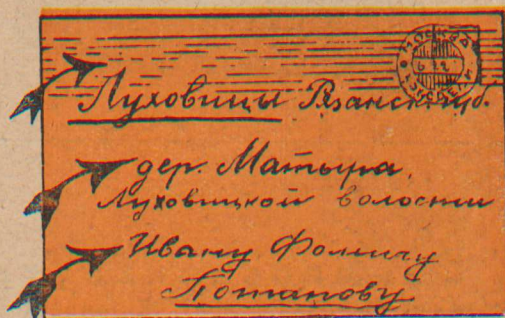 МОСКВА
Луховицы Рязанск. губ.
дер. Матыра,
Луховицкой волости
Ивану Фомичу
Потапову